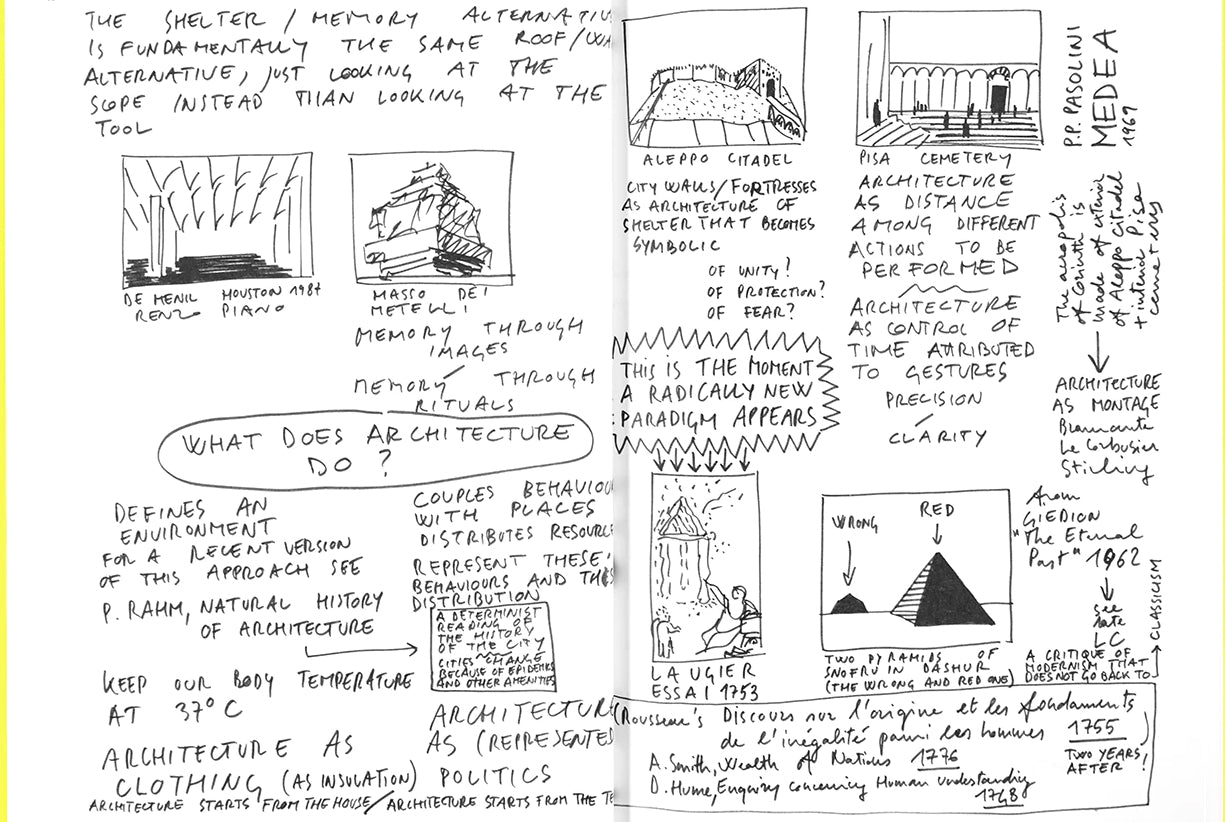 THE SHELTER / MEMORY ALTERNATIV
IS FUNDAMENTALLY THE SAME ROOF/WA
ALTERNATIVE, JUST LOOKING AT THE
SCOPE INSTEAD THAN LOOKING AT THE
TOOL
DE MENIL HOUSTON 1987
RENZO PIANO
MASSO DEI
METELLI
MEMORY THROUGH
IMAGES
/
MEMORY THROUGH
RITUALS
WHAT DOES ARCHITECTURE
DO ?
DEFINES AN
ENVIRONMENT
FOR A RECENT VERSION
OF THIS APPROACH SEE
P. RAHM, NATURAL HISTORY
OF ARCHITECTURE
KEEP OUR BODY TEMPERATURE
AT 37° C
ARCHITECTURE AS
CLOTHING (AS INSULATION)
ARCHITECTURE STARTS FROM THE HOUSE / ARCHITECTURE STARTS FROM THE TE
COUPLES BEHAVIOU
WITH PLACES
DISTRIBUTES RESOURCE
REPRESENT THESE
BEHAVIOURS AND THIS
DISTRIBUTION
A DETERMINIST
READING OF
THE HISTORY
OF THE CITY
CITIES CHANGE
BECAUSE OF EPIDEMICS
AND OTHER AMENITIES
ARCHITECTURE
AS (REPRESENTE
POLITICS
ALEPPO CITADEL
CITY WALLS/FORTRESSES
AS ARCHITECTURE OF
SHELTER THAT BECOMES
SYMBOLIC
OF UNITY?
OF PROTECTION?
OF FEAR?
THIS IS THE MOMENT
A RADICALLY NEW
PARADIGM APPEARS
LAUGIER
ESSAI 1753
PISA CEMETERY
ARCHITECTURE
AS DISTANCE
AMONG DIFFERENT
ACTIONS TO BE
PERFORMED
ARCHITECTURE
AS CONTROL OF
TIME ATTRIBUTED
TO GESTURES
PRECISION
/
CLARITY
WRONG
RED
TWO PYRAMIDS OF
SNOFRU IN DASHUR
(THE WRONG AND RED ONE)
P.P. PASOLINI
MEDEA
1969
The acropolis
of Corinth is
made of exterior
of Aleppo Citadel
+ interior Pisa
cemetery
ARCHITECTURE
AS MONTAGE
Bramante
Le Corbusier
Stirling
from
GIEDION
"The Eternal
Past" 1962
see
late
LC
A CRITIQUE OF
MODERNISM THAT
DOES NOT GO BACK TO
CLASSICISM
(Rousseau's Discours sur l'origine et les fondaments
de l'inégalité parmi les hommes 1755
TWO YEARS
AFTER!
A. Smith, Wealth of Nations 1776
D. Hume, Enquiry concerning Human understanding
1748